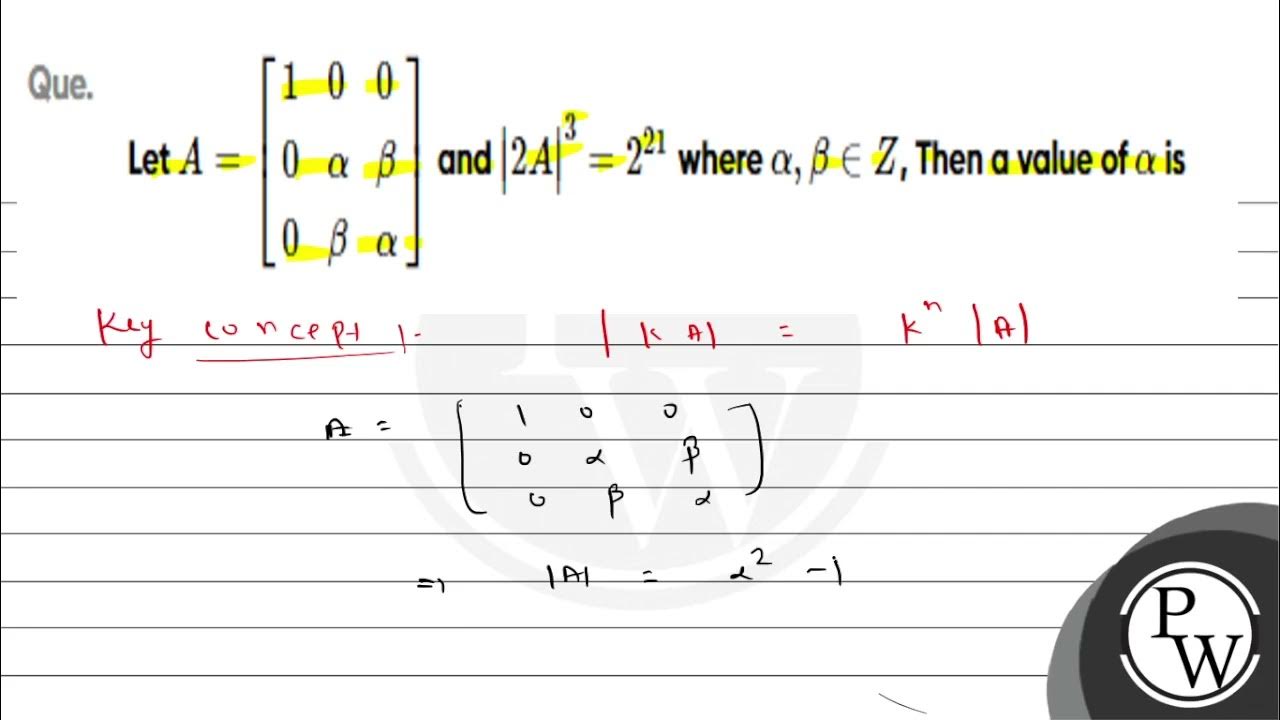 Que.
Let A = [1 0 0
0 α β
0 β α] and |2A|³ = 2²¹ where α, β ∈ Z, Then a value of α is
Key concept :- |kA| = kⁿ |A|
A = [1 0 0
0 α β
0 β α]
⇒ |A| = α² - 1
P
W